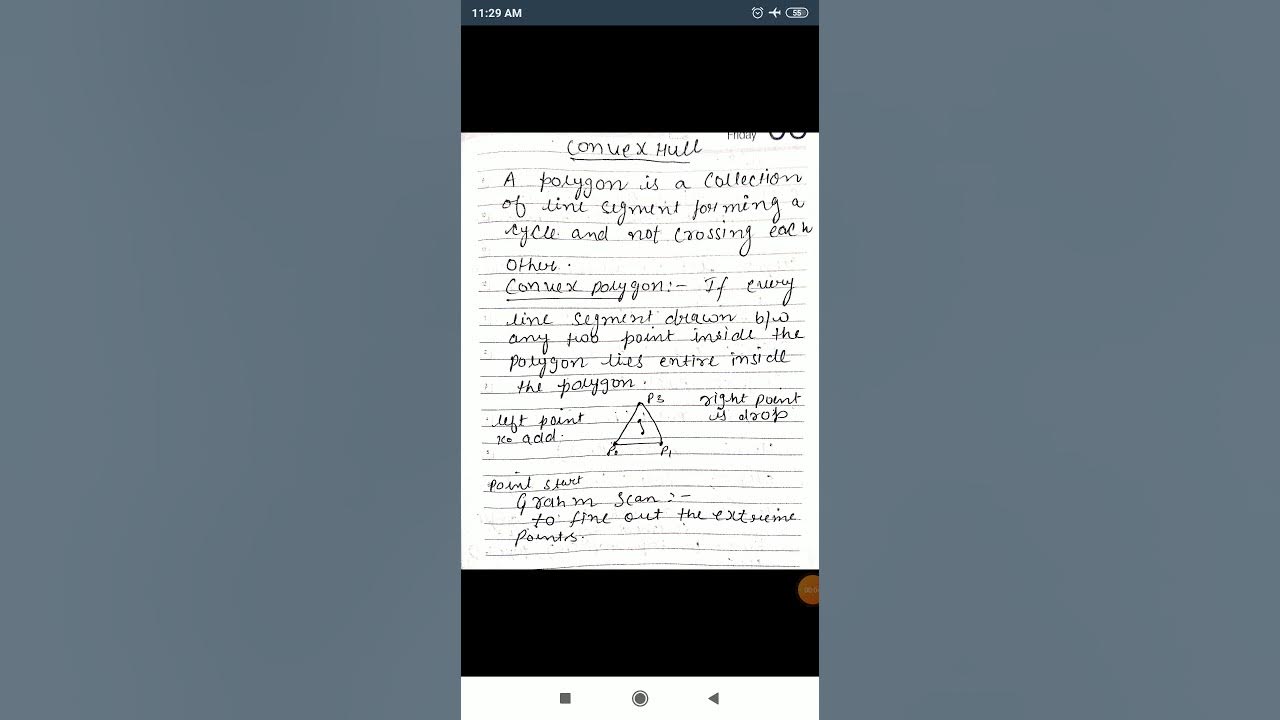 11:29 AM
55
Friday
Convex Hull
A polygon is a collection
of line segment forming a
cycle and not crossing each
other.
Convex polygon:- If every
line segment drawn b/w
any two point inside the
polygon lies entire inside
the polygon.
P3
right point
is drop
left point
ko add.
P0
P1
point start
Graham scan:-
to fine out the extreme
points.